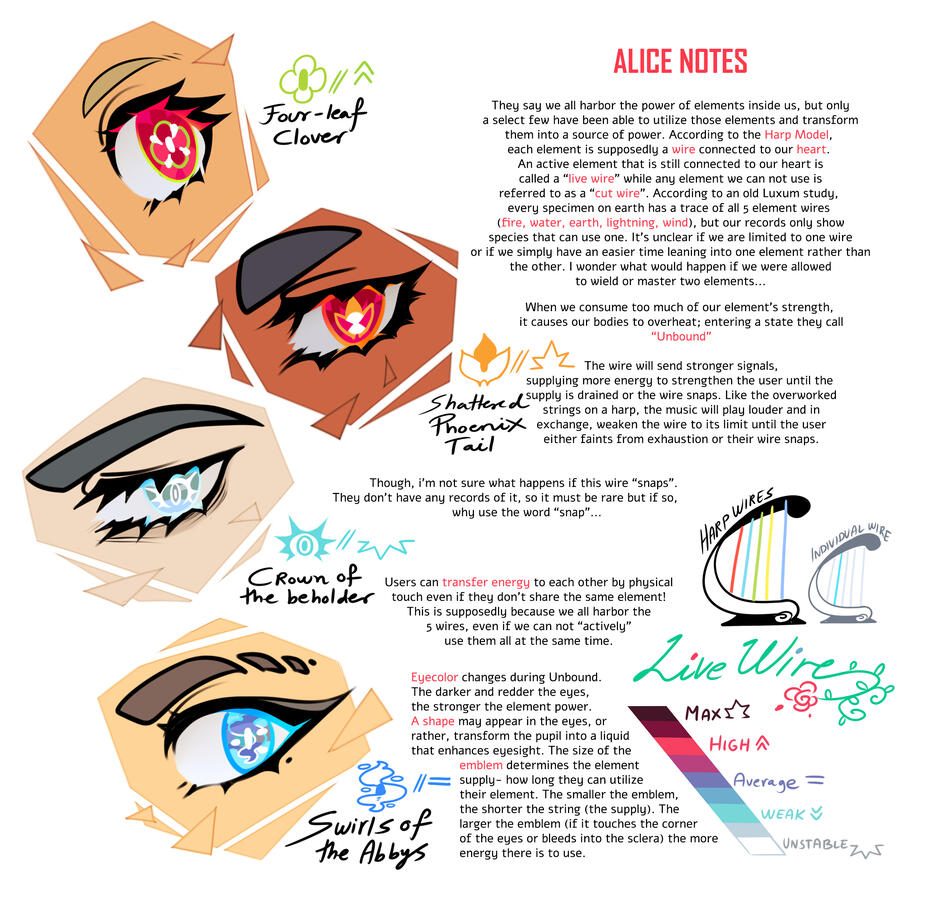 ALICE NOTES
They say we all harbor the power of elements inside us, but only
a select few have been able to utilize those elements and transform
them into a source of power. According to the Harp Model,
each element is supposedly a wire connected to our heart.
An active element that is still connected to our heart is
called a “live wire” while any element we can not use is
referred to as a “cut wire”. According to an old Luxum study,
every specimen on earth has a trace of all 5 element wires
(fire, water, earth, lightning, wind), but our records only show
species that can use one. It's unclear if we are limited to one wire
or if we simply have an easier time leaning into one element rather than
the other. I wonder what would happen if we were allowed
to wield or master two elements...
When we consume too much of our element's strength,
it causes our bodies to overheat; entering a state they call
“Unbound”
The wire will send stronger signals,
supplying more energy to strengthen the user until the
supply is drained or the wire snaps. Like the overworked
strings on a harp, the music will play louder and in
exchange, weaken the wire to its limit until the user
either faints from exhaustion or their wire snaps.
Though, i'm not sure what happens if this wire “snaps”.
They don't have any records of it, so it must be rare but if so,
why use the word “snap”...
Users can transfer energy to each other by physical
touch even if they don't share the same element!
This is supposedly because we all harbor the
5 wires, even if we can not “actively”
use them all at the same time.
Eyecolor changes during Unbound.
The darker and redder the eyes,
the stronger the element power.
A shape may appear in the eyes, or
rather, transform the pupil into a liquid
that enhances eyesight. The size of the
emblem determines the element
supply- how long they can utilize
their element. The smaller the emblem,
the shorter the string (the supply). The
larger the emblem (if it touches the corner
of the eyes or bleeds into the sclera) the more
energy there is to use.
Four-leaf
Clover
Shattered
Phoenix
Tail
Crown of
the beholder
Swirls of
the Abbys
HARP WIRES
INDIVIDUAL WIRE
Live Wire
MAX
HIGH
Average =
WEAK
UNSTABLE